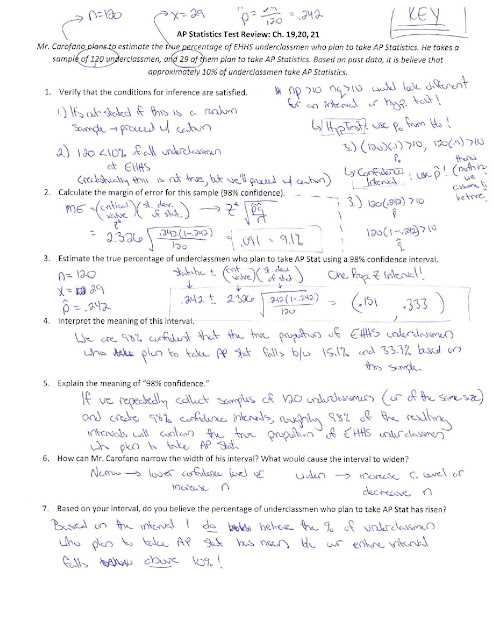 n=120 x=29 p̂ = 29/120 = .242 KEY
AP Statistics Test Review: Ch. 19,20, 21
Mr. Carofano plans to estimate the true percentage of EHHS underclassmen who plan to take AP Statistics. He takes a
sample of 120 underclassmen, and 29 of them plan to take AP Statistics. Based on past data, it is believe that
approximately 10% of underclassmen take AP Statistics.
* np>10 nq>10 would look different
for an interval or hyp. test!
1. Verify that the conditions for inference are satisfied.
1.) It's not stated if this is a random
sample → proceed w/ caution
↳ Hyp Test: use p₀ from H₀!
3.) (120)(.1)>10, 120(.9)>10
p₀
2) 120 <10% of all underclassmen
at EHHS
(realistically this is not true, but we'll proceed w/ caution)
↳ Confidence Interval: use p̂!
2. Calculate the margin of error for this sample (98% confidence).
ME = (critical value)(st. dev. of stat.) → z* √(p̂q̂/n)
3.) 120(.242)>10
p̂
= 2.326 √(.242(1-.242)/120) = .091 = 9.1%
120(1-.242)>10
q̂
3. Estimate the true percentage of underclassmen who plan to take AP Stat using a 98% confidence interval.
n=120
x=29
p̂=.242
statistic ± (crit value)(st. dev of stat)
One Prop Z Interval!
.242 ± 2.326 √(.242(1-.242)/120) = (.151, .333)
4. Interpret the meaning of this interval.
We are 98% confident that the true proportion of EHHS underclassmen
who plan to take AP Stat falls b/w 15.1% and 33.3% based on
this sample.
5. Explain the meaning of "98% confidence."
If we repeatedly collect samples of 120 underclassmen (or of the same size)
and create 98% confidence intervals, roughly 98% of the resulting
intervals will contain the true proportion of EHHS underclassmen
who plan to take AP Stat.
6. How can Mr. Carofano narrow the width of his interval? What would cause the interval to widen?
Narrow → lower confidence level or
increase n
widen → increase C. level or
decrease n
7. Based on your interval, do you believe the percentage of underclassmen who plan to take AP Stat has risen?
Based on the interval I do believe the % of underclassmen
who plan to take AP Stat has risen b/c our entire interval
falls above 10%!